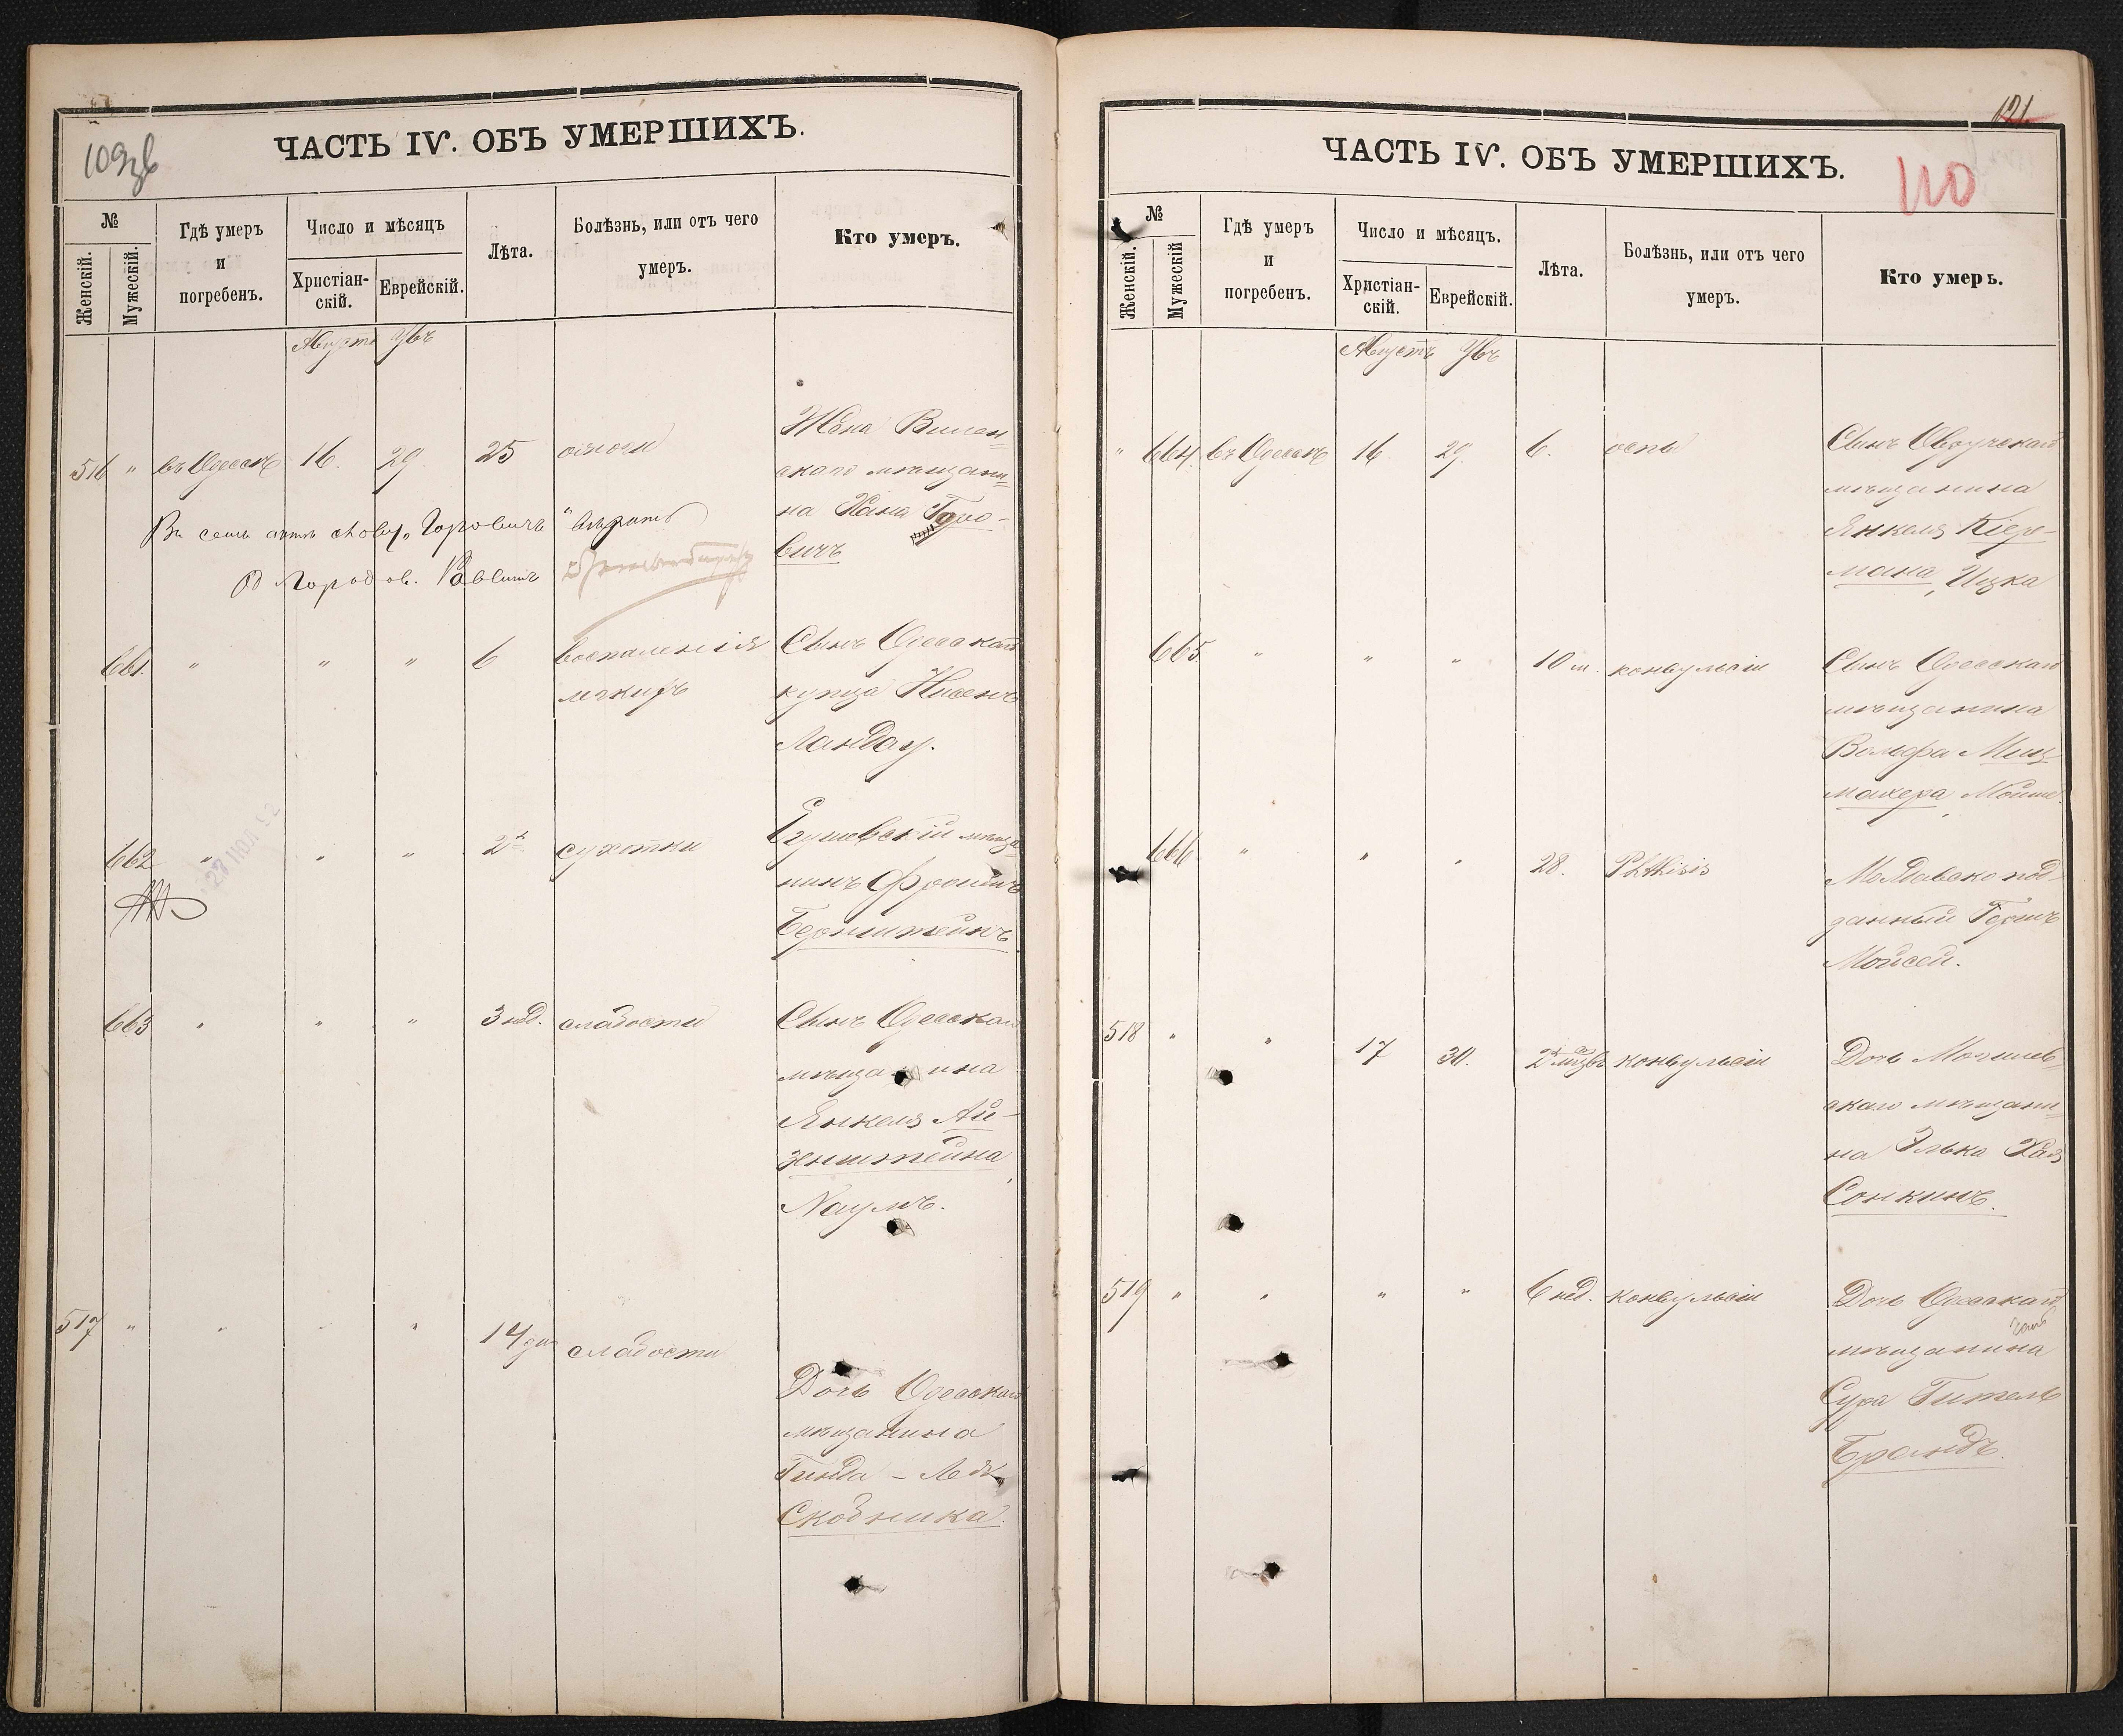 109об
ЧАСТЬ IV. ОБЪ УМЕРШИХЪ.
№
Женскій.
Мужескій.
Гдѣ умеръ
и
погребенъ.
Число и мѣсяцъ
Христіан-
скій.
Еврейскій.
Лѣта.
Болѣзнь, или отъ чего
умеръ.
Кто умеръ.
Августъ
516 " въ Одессѣ 16. 29. 25
Жена Вилен=
скаго мѣщани=
на Хана Горо-
вичъ
Въ семъ актѣ слову "Горовичъ" вѣрить
Городов. Раввинъ
661. " " " 6 воспаленія
легкихъ
Сынъ Одесскаго
купца Нисенъ
Ландау.
662 " " " 2 сухотки
мѣща=
нинъ Фроимъ
Бернштейнъ
663 " " " 3 нед. слабости
Сынъ Одесскаго
мѣщанина
Янкеля Ай-
зенштейна,
Наумъ.
517 " " " " 14 дн. слабости
Дочь Одесскаго
мѣщанина
Гинда - Лея
Скобника.
121
110
ЧАСТЬ IV. ОБЪ УМЕРШИХЪ.
№
Женскій.
Мужескій
Гдѣ умеръ
и
погребенъ.
Число и мѣсяцъ.
Христіан-
скій.
Еврейскій.
Лѣта.
Болѣзнь, или отъ чего
умеръ.
Кто умеръ.
Августъ
" 664. въ Одессѣ 16 29. 6. оспы
Сынъ Овручскаго
мѣщанина
Янкеля Кер-
мана, Ицка
665 " " " 10 м. конвульсіи
Сынъ Одесскаго
мѣщанина
Вольфа Миц-
махера, Мойше.
666 " " " 28. Phthisis
Молдавско под-
данный Герш
Мойсей.
518 " " 17 30. 2 конвульсіи
Дочь Могилев=
скаго мѣщани=
на Элька Хая
Сонкинъ.
519 " " " " 6 нед. конвульсіи
Дочь Одесскаго
мѣщанина
Сура Гитель
Брандъ.